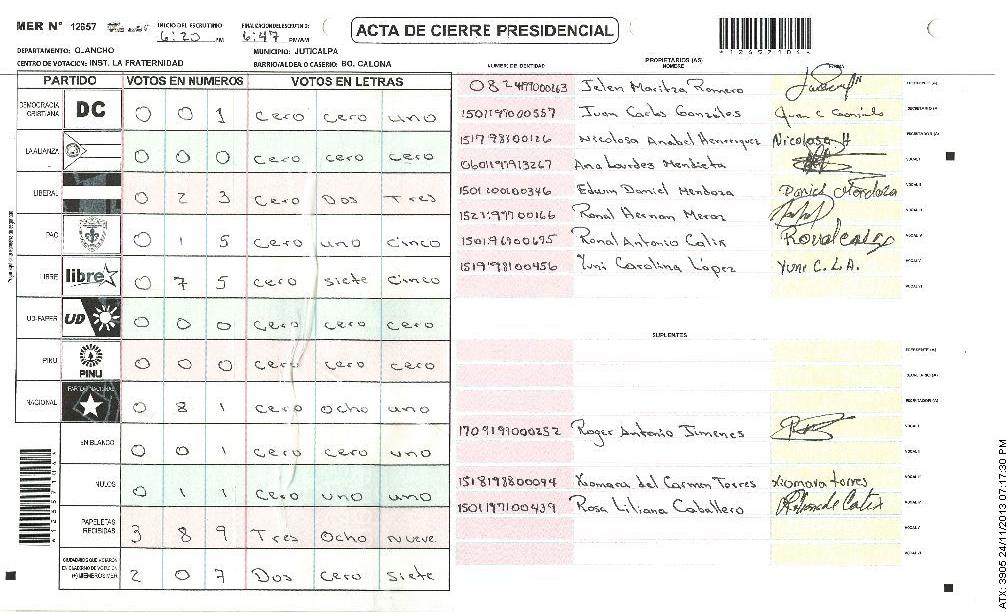 MER Nº 12657 INICIO DEL ESCRUTINIO: 6:20 PM FINALIZACION DEL ESCRUTINIO: 6:47 PM/AM
ACTA DE CIERRE PRESIDENCIAL
DEPARTAMENTO: OLANCHO MUNICIPIO: JUTICALPA
CENTRO DE VOTACION: INST. LA FRATERNIDAD BARRIO/ALDEA O CASERIO: BO. CALONA
PARTIDO VOTOS EN NUMEROS VOTOS EN LETRAS
DEMOCRACIA CRISTIANA DC 0 0 1 cero cero uno
LA ALIANZA 0 0 0 cero cero cero
LIBERAL 0 2 3 cero Dos Tres
PAC 0 1 5 cero uno cinco
LIBRE libre 0 7 5 cero siete cinco
UD-FAPER UD 0 0 0 cero cero cero
PINU PINU 0 0 0 cero cero cero
NACIONAL PARTIDO NACIONAL 0 8 1 cero ocho uno
EN BLANCO 0 0 1 cero cero uno
NULOS 0 1 1 cero uno uno
PAPELETAS RECIBIDAS 3 8 9 Tres Ocho nueve
CIUDADANOS QUE VOTARON EN CUADERNO DE VOTACION (+) MIEMBROS MER 2 0 7 Dos cero siete
PROPIETARIOS (AS)
NUMERO DE IDENTIDAD NOMBRE FIRMA
Jelen Maritza Romero PRESIDENTE (A)
Juan Carlos Gonzales Juan C Gonzales SECRETARIO (A)
Nicolosa Anabel Henriquez Nicolosa H ESCRUTADOR (A)
Ana Lourdes Mendieta VOCAL I
1501200100346 Edwin Daniel Mendoza Daniel Mendoza VOCAL II
Ronal Hernan Meraz VOCAL III
Ronal Antonio Calix VOCAL IV
1519198100456 Yuni Carolina López Yuni C. L.A. VOCAL V
VOCAL VI
SUPLENTES
PRESIDENTE (A)
SECRETARIO (A)
ESCRUTADOR (A)
1709199000252 Roger Antonio Jimenes VOCAL I
VOCAL II
1518198800094 Xiomara del Carmen Torres xiomara torres VOCAL III
1501197100439 Rosa Liliana Caballero VOCAL IV
VOCAL V
VOCAL VI
A12657101A
ATX: 3905 24/11/2013 07:17:30 PM